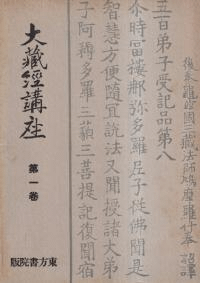 後秦龜茲國三藏法師鳩摩羅什奉 詔譯
五百弟子受記品第八
尒時富樓那彌多羅尼子從佛聞是
智慧方便隨宜說法又聞授諸大弟
子阿耨多羅三藐三菩提記復聞宿
大藏經講座
第一卷
東方書院版